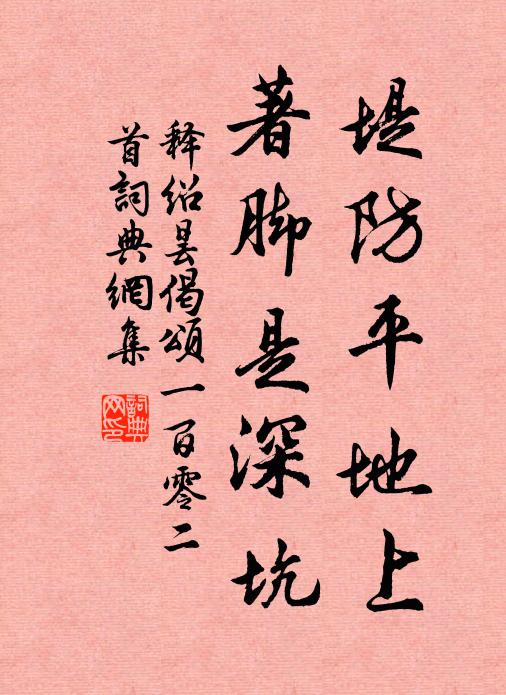 堤防平地上
著脚是深坑
释绍昙偈頌一百零二
首詞典網集
詞典网印